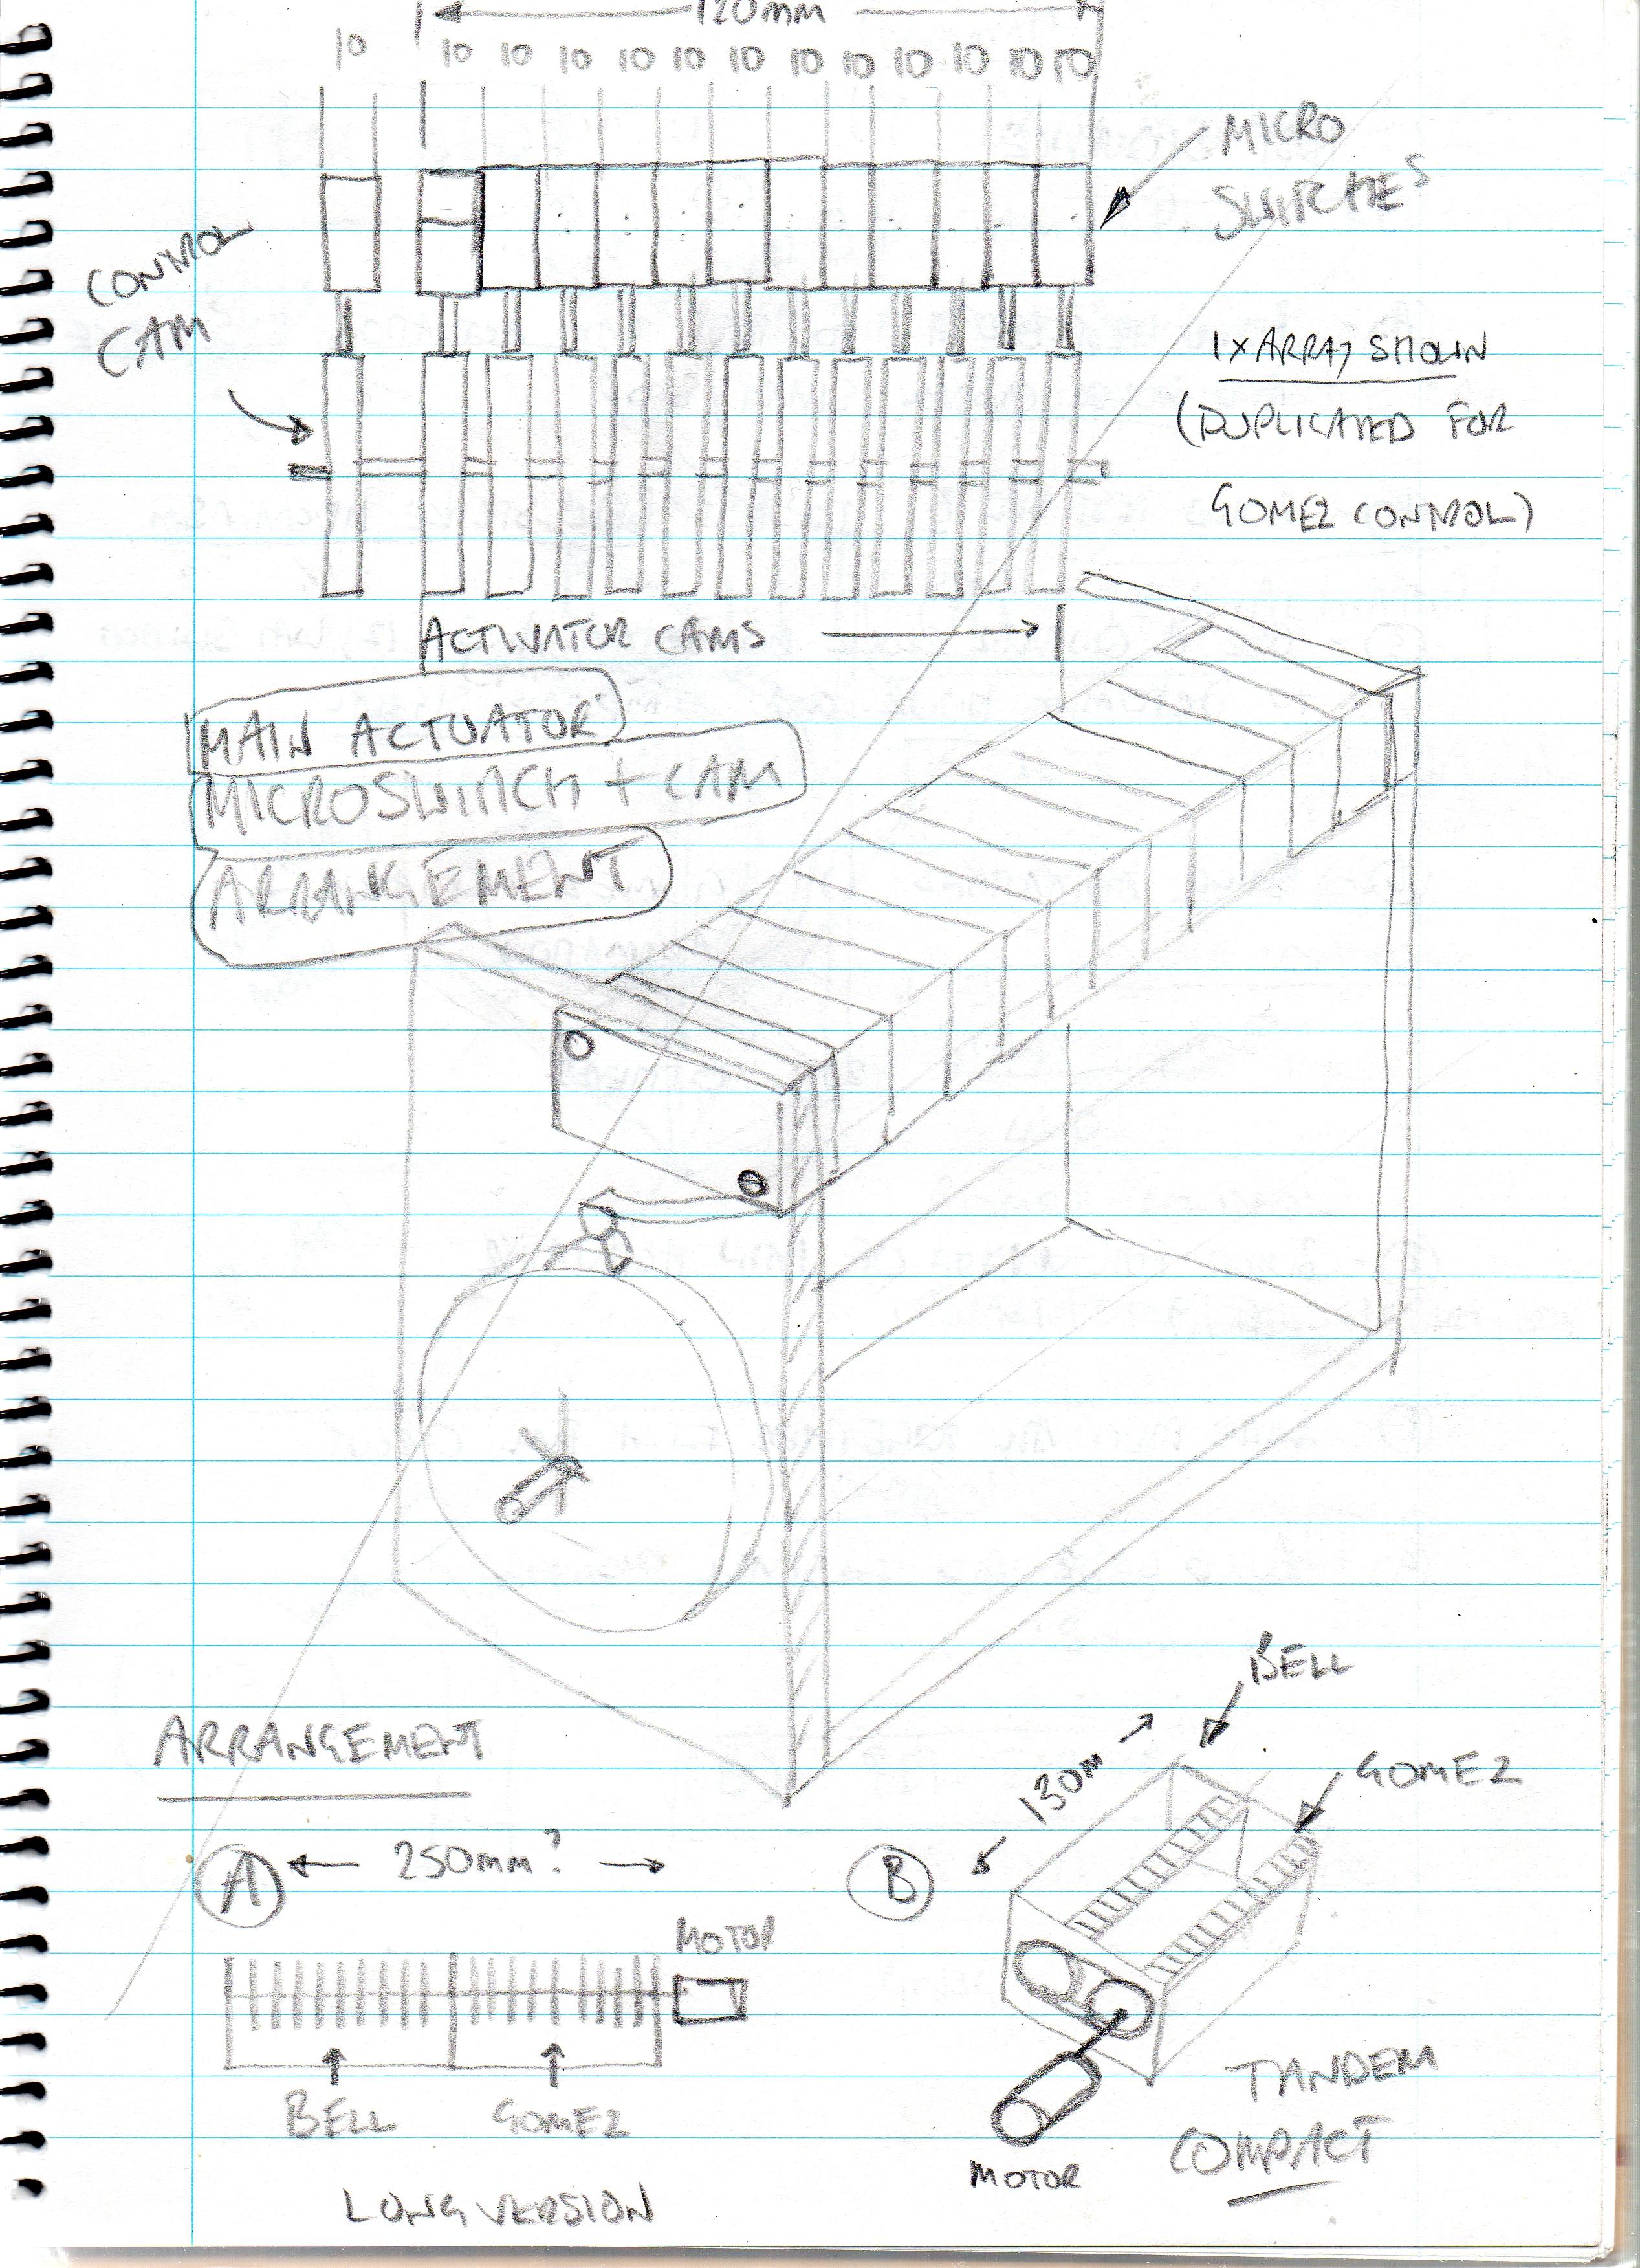 120mm
10 10 10 10 10 10 10 10 10 10 10 10 10
MICRO
SWITCHES
CONTROL
CAM
1 x ARRAY SHOWN
(DUPLICATED FOR
GOMEZ CONTROL)
ACTIVATOR CAMS
MAIN ACTUATOR
MICROSWITCH + CAM
ARRANGEMENT
BELL
130m
GOMEZ
ARRANGEMENT
A 250mm?
B
MOTOR
BELL GOMEZ
TANDEM
COMPACT
MOTOR
LONG VERSION